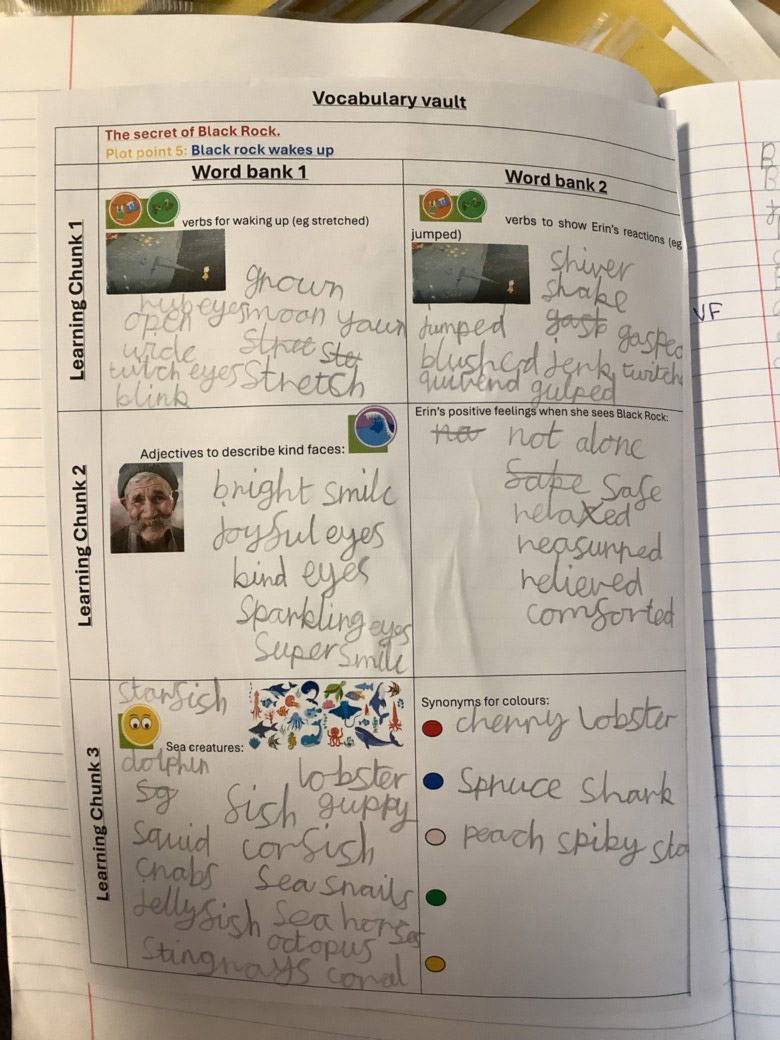 Vocabulary vault
The secret of Black Rock.
Plot point 5: Black rock wakes up
Word bank 1
Word bank 2
Learning Chunk 1
verbs for waking up (eg stretched)
grown
rub eyes moon yawn
open
wide Stret Ste
twitch eyes Stretch
blink
verbs to show Erin's reactions (eg
jumped)
shiver
shake
Jumped gasp gasped
blushed jerk twitch
quiverd gulped
VF
Learning Chunk 2
Adjectives to describe kind faces:
bright smile
Joyful eyes
kind eyes
Sparkling eyes
Super smile
Erin's positive feelings when she sees Black Rock:
na not alone
Safe Safe
relaxed
reasurred
relieved
comforted
Learning Chunk 3
Starfish
Sea creatures:
dolphin lobster
Sg fish guppy
Squid corfish
Crabs Sea snails
Jellyfish Sea horses
octopus
Stingrays coral
Synonyms for colours:
cherry lobster
Spruce shark
peach spiky sta